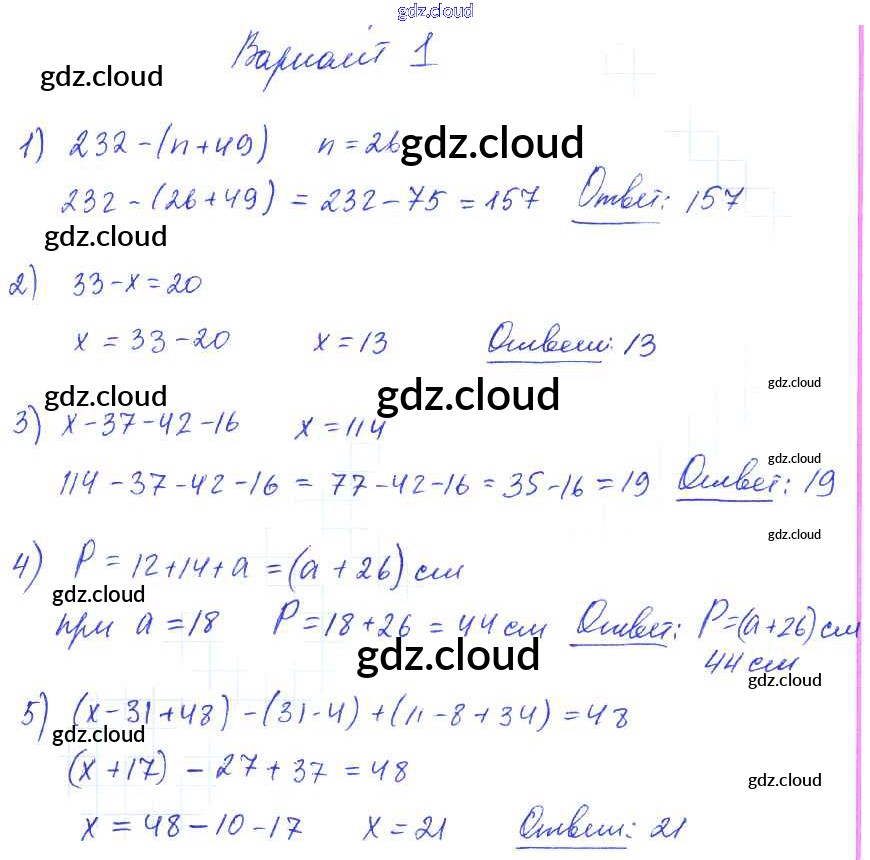 gdz.cloud
Вариант 1
gdz.cloud
1) 232-(n+49) n=26
gdz.cloud
232-(26+49) = 232-75 = 157 Ответ: 157
gdz.cloud
2) 33-x=20
x = 33-20 x=13 Ответ: 13
gdz.cloud gdz.cloud gdz.cloud
3) x-37-42-16 x=114
gdz.cloud
114-37-42-16 = 77-42-16 = 35-16 = 19 Ответ: 19
gdz.cloud
4) P=12+14+a=(a+26) см
gdz.cloud
при a=18 P=18+26=44 см Ответ: P=(a+26) см
44 см
gdz.cloud
gdz.cloud
5) (x-31+48)-(31-4)+(11-8+34)=48
gdz.cloud
(x+17)-27+37=48
gdz.cloud
x=48-10-17 x=21 Ответ: 21